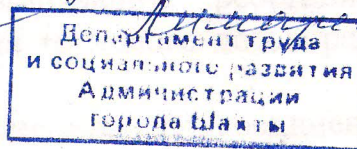 Департамент труда
и социального развития
Администрации
города Шахты